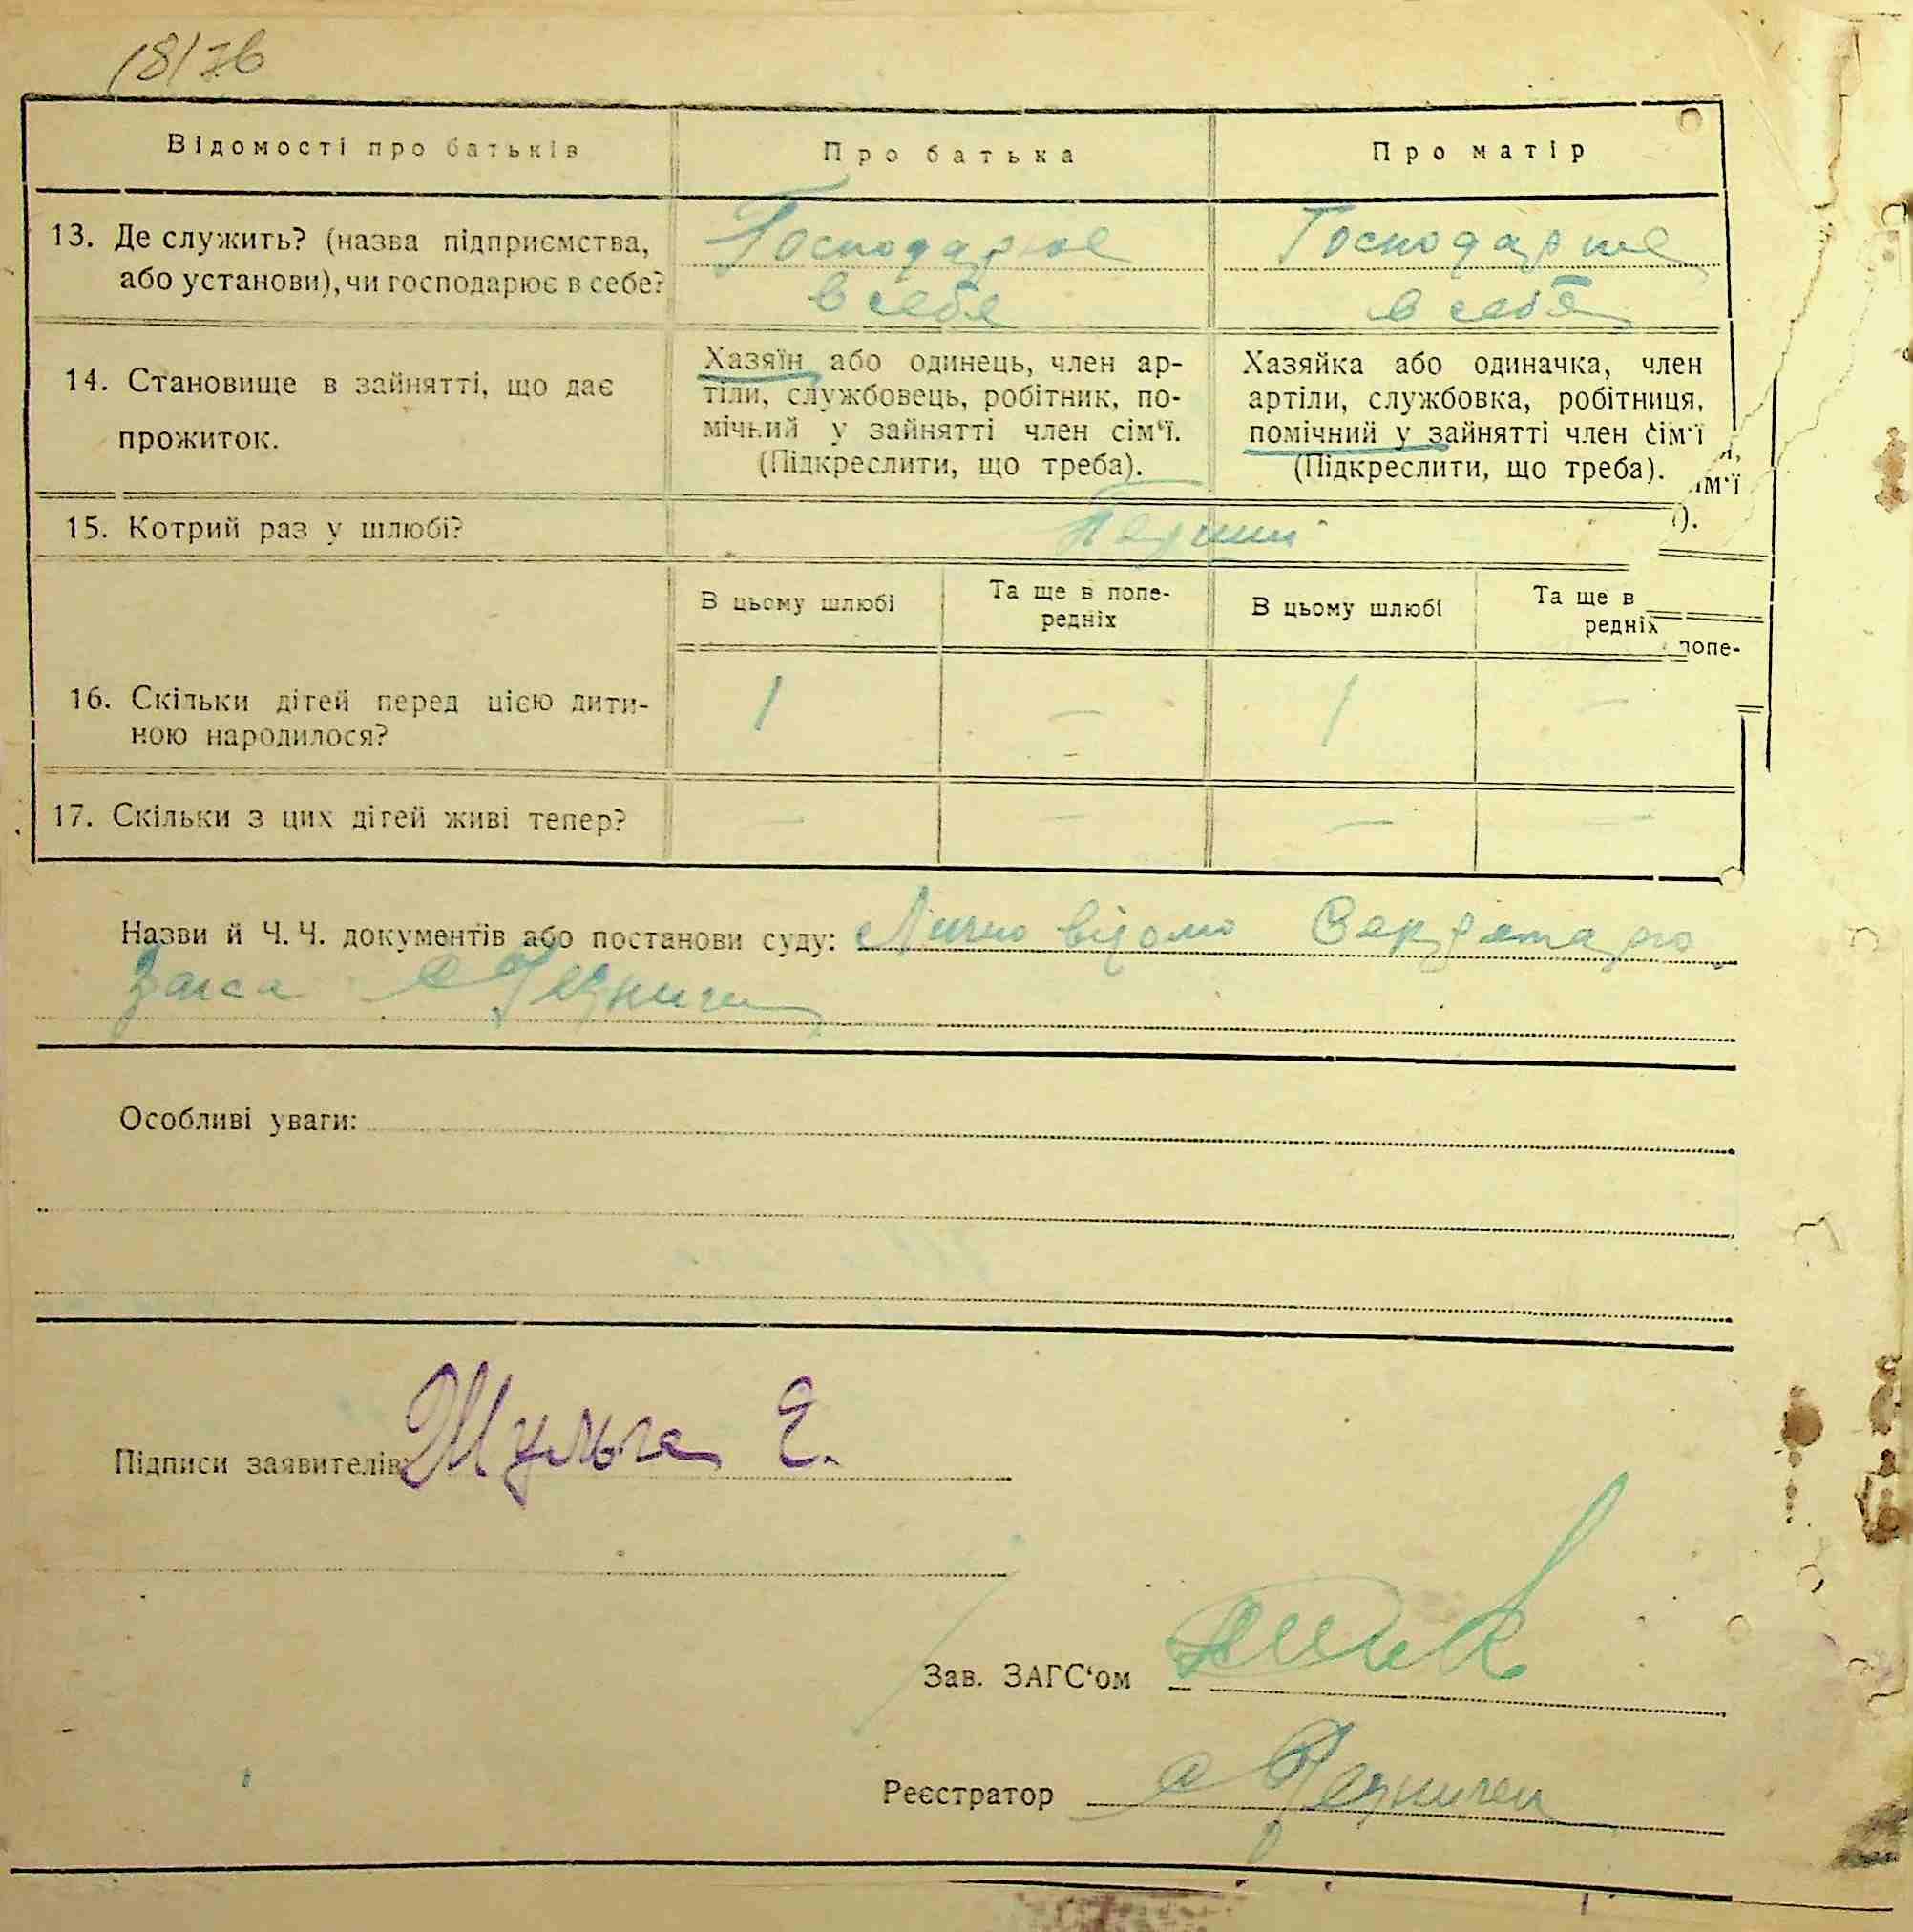 18/76
Відомості про батьків Про батька Про матір
13. Де служить? (назва підприємства, Господарює Господарює
або установи), чи господарює в себе? в себе в себе
Хазяїн або одинець, член ар- Хазяйка або одиначка, член
14. Становище в зайнятті, що дає тіли, службовець, робітник, по- артіли, службовка, робітниця,
прожиток. мічний у зайнятті член сім‘ї. помічний у зайнятті член сім‘ї
(Підкреслити, що треба). (Підкреслити, що треба). ім‘ї
15. Котрий раз у шлюбі? Перший ).
В цьому шлюбі Та ще в попе- В цьому шлюбі Та ще в
редніх редніх
попе-
16. Скільки дітей перед цією дити- 1 — 1 —
ною народилося?
17. Скільки з цих дітей живі тепер? — — — —
Назви й Ч. Ч. документів або постанови суду: Лично відомо
Загса
Особливі уваги:
Підписи заявителів: Шульга Є.
Зав. ЗАГС‘ом
Реєстратор